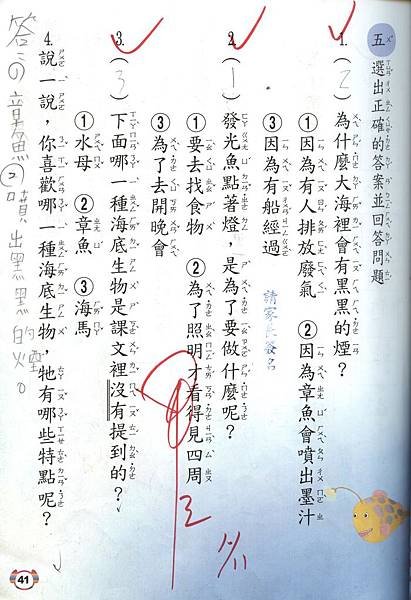 五 選出正確的答案並回答問題
1.(2)為什麼大海裡會有黑黑的煙？
①因為有人排放廢氣 ②因為章魚會噴出墨汁
③因為有船經過
請家長簽名
2.(1)發光魚點著燈，是為了要做什麼呢？
①要去找食物 ②為了照明才看得見四周
③為了去開晚會
3.(3)下面哪一種海底生物是課文裡沒有提到的？
①水母 ②章魚 ③海馬
4.說一說，你喜歡哪一種海底生物，牠有哪些特點呢？
答：①章魚②噴出黑黑的煙。
41